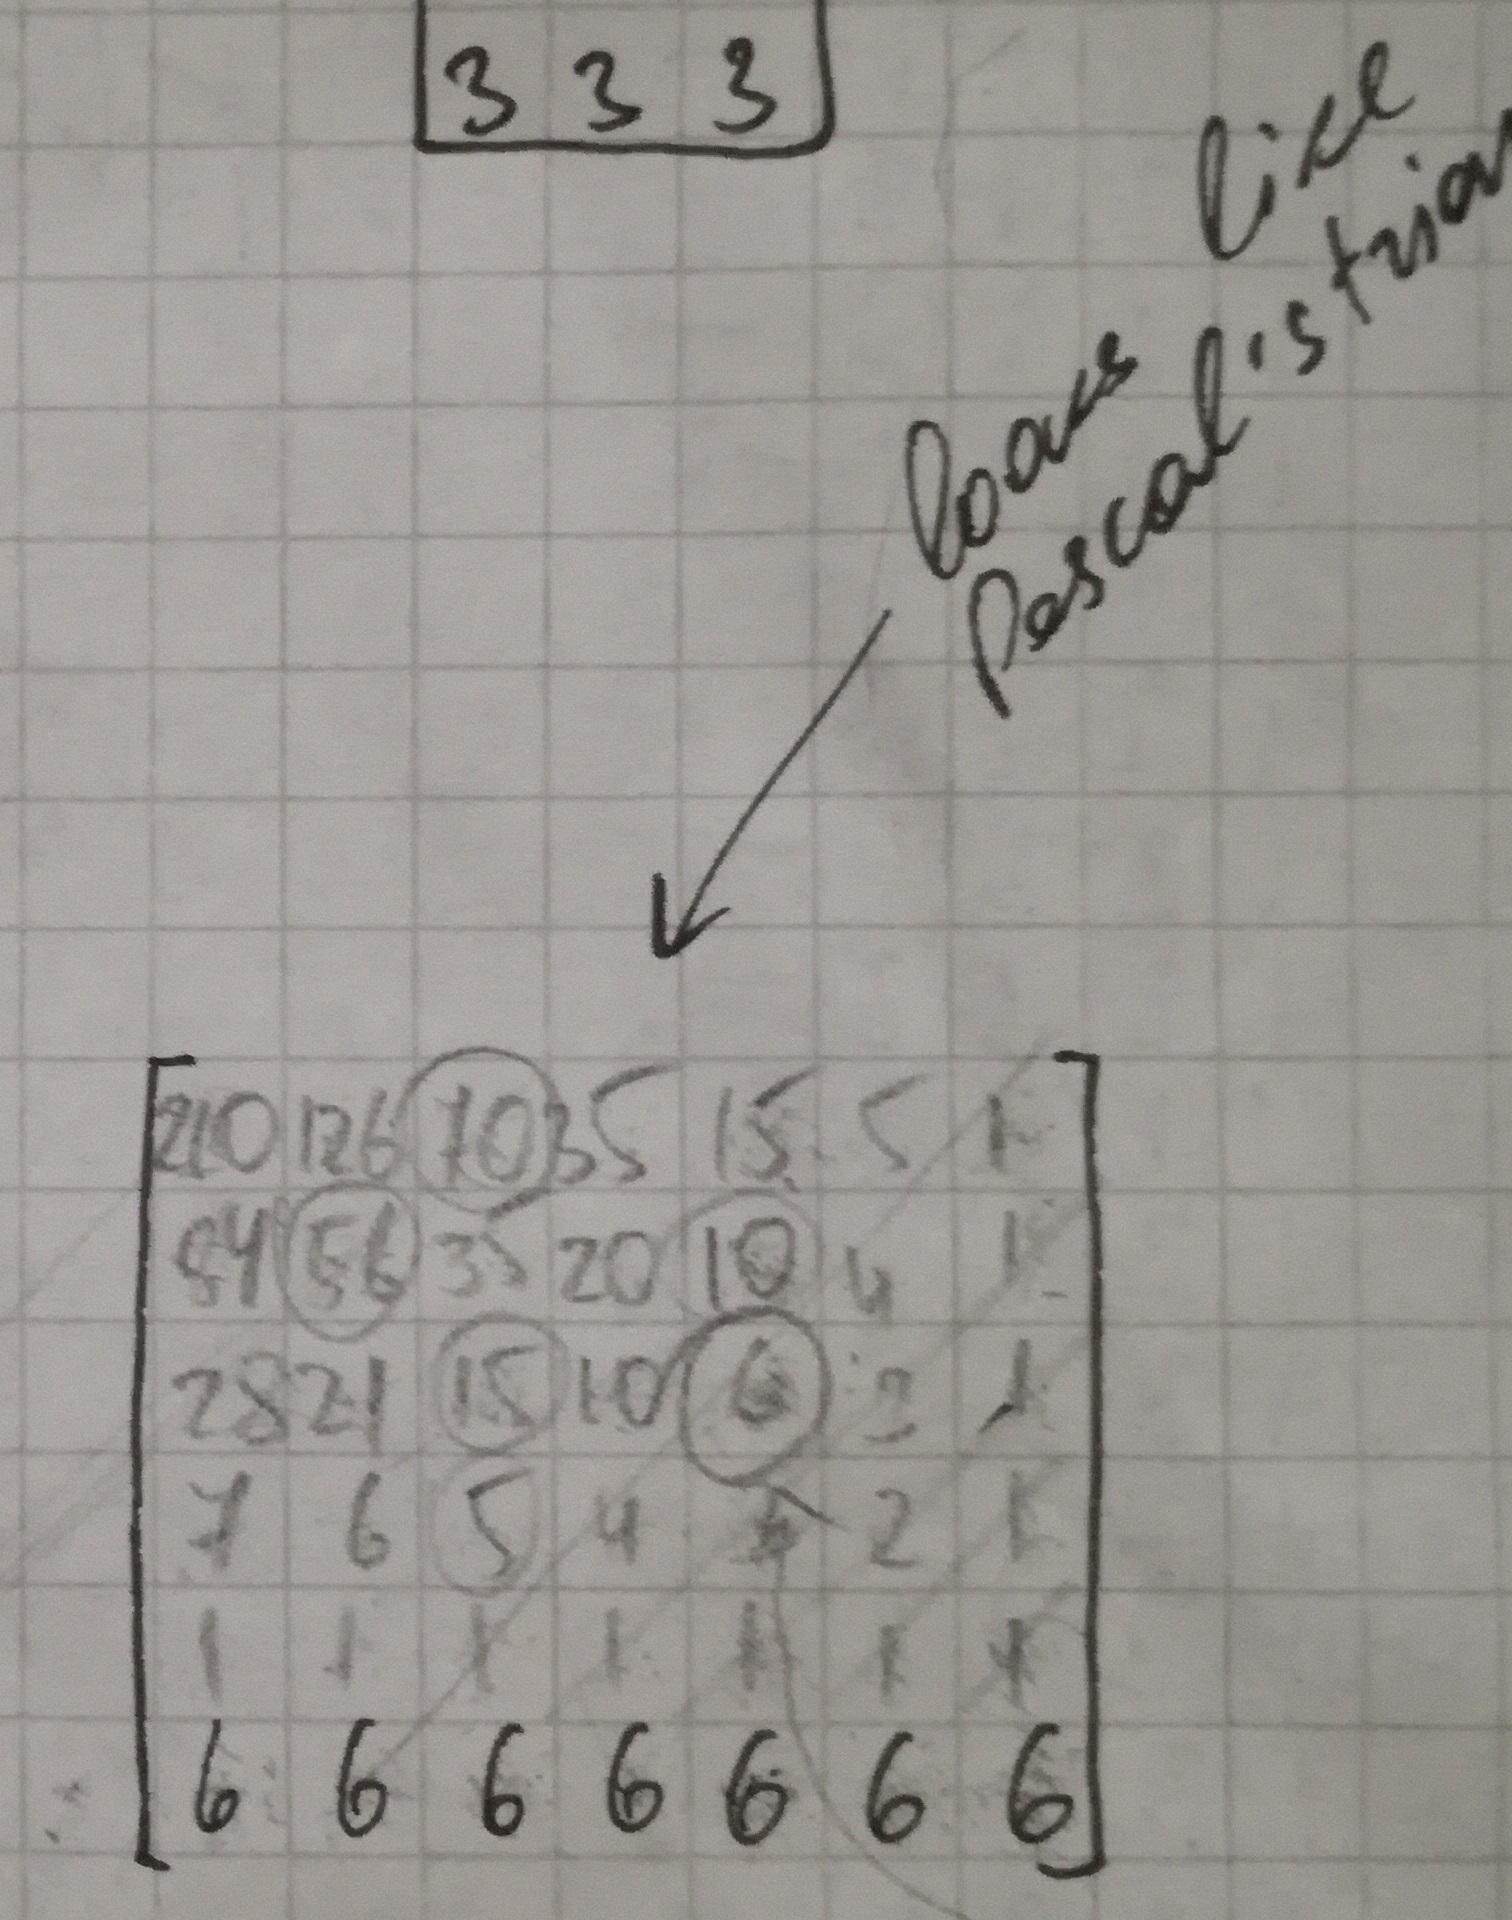 3 3 3
looks like
Pascal's trian
210 126 70 35 15 5 1
84 56 35 20 10 4 1
28 21 15 10 6 3 1
7 6 5 4 3 2 1
1 1 1 1 1 1 1
6 6 6 6 6 6 6